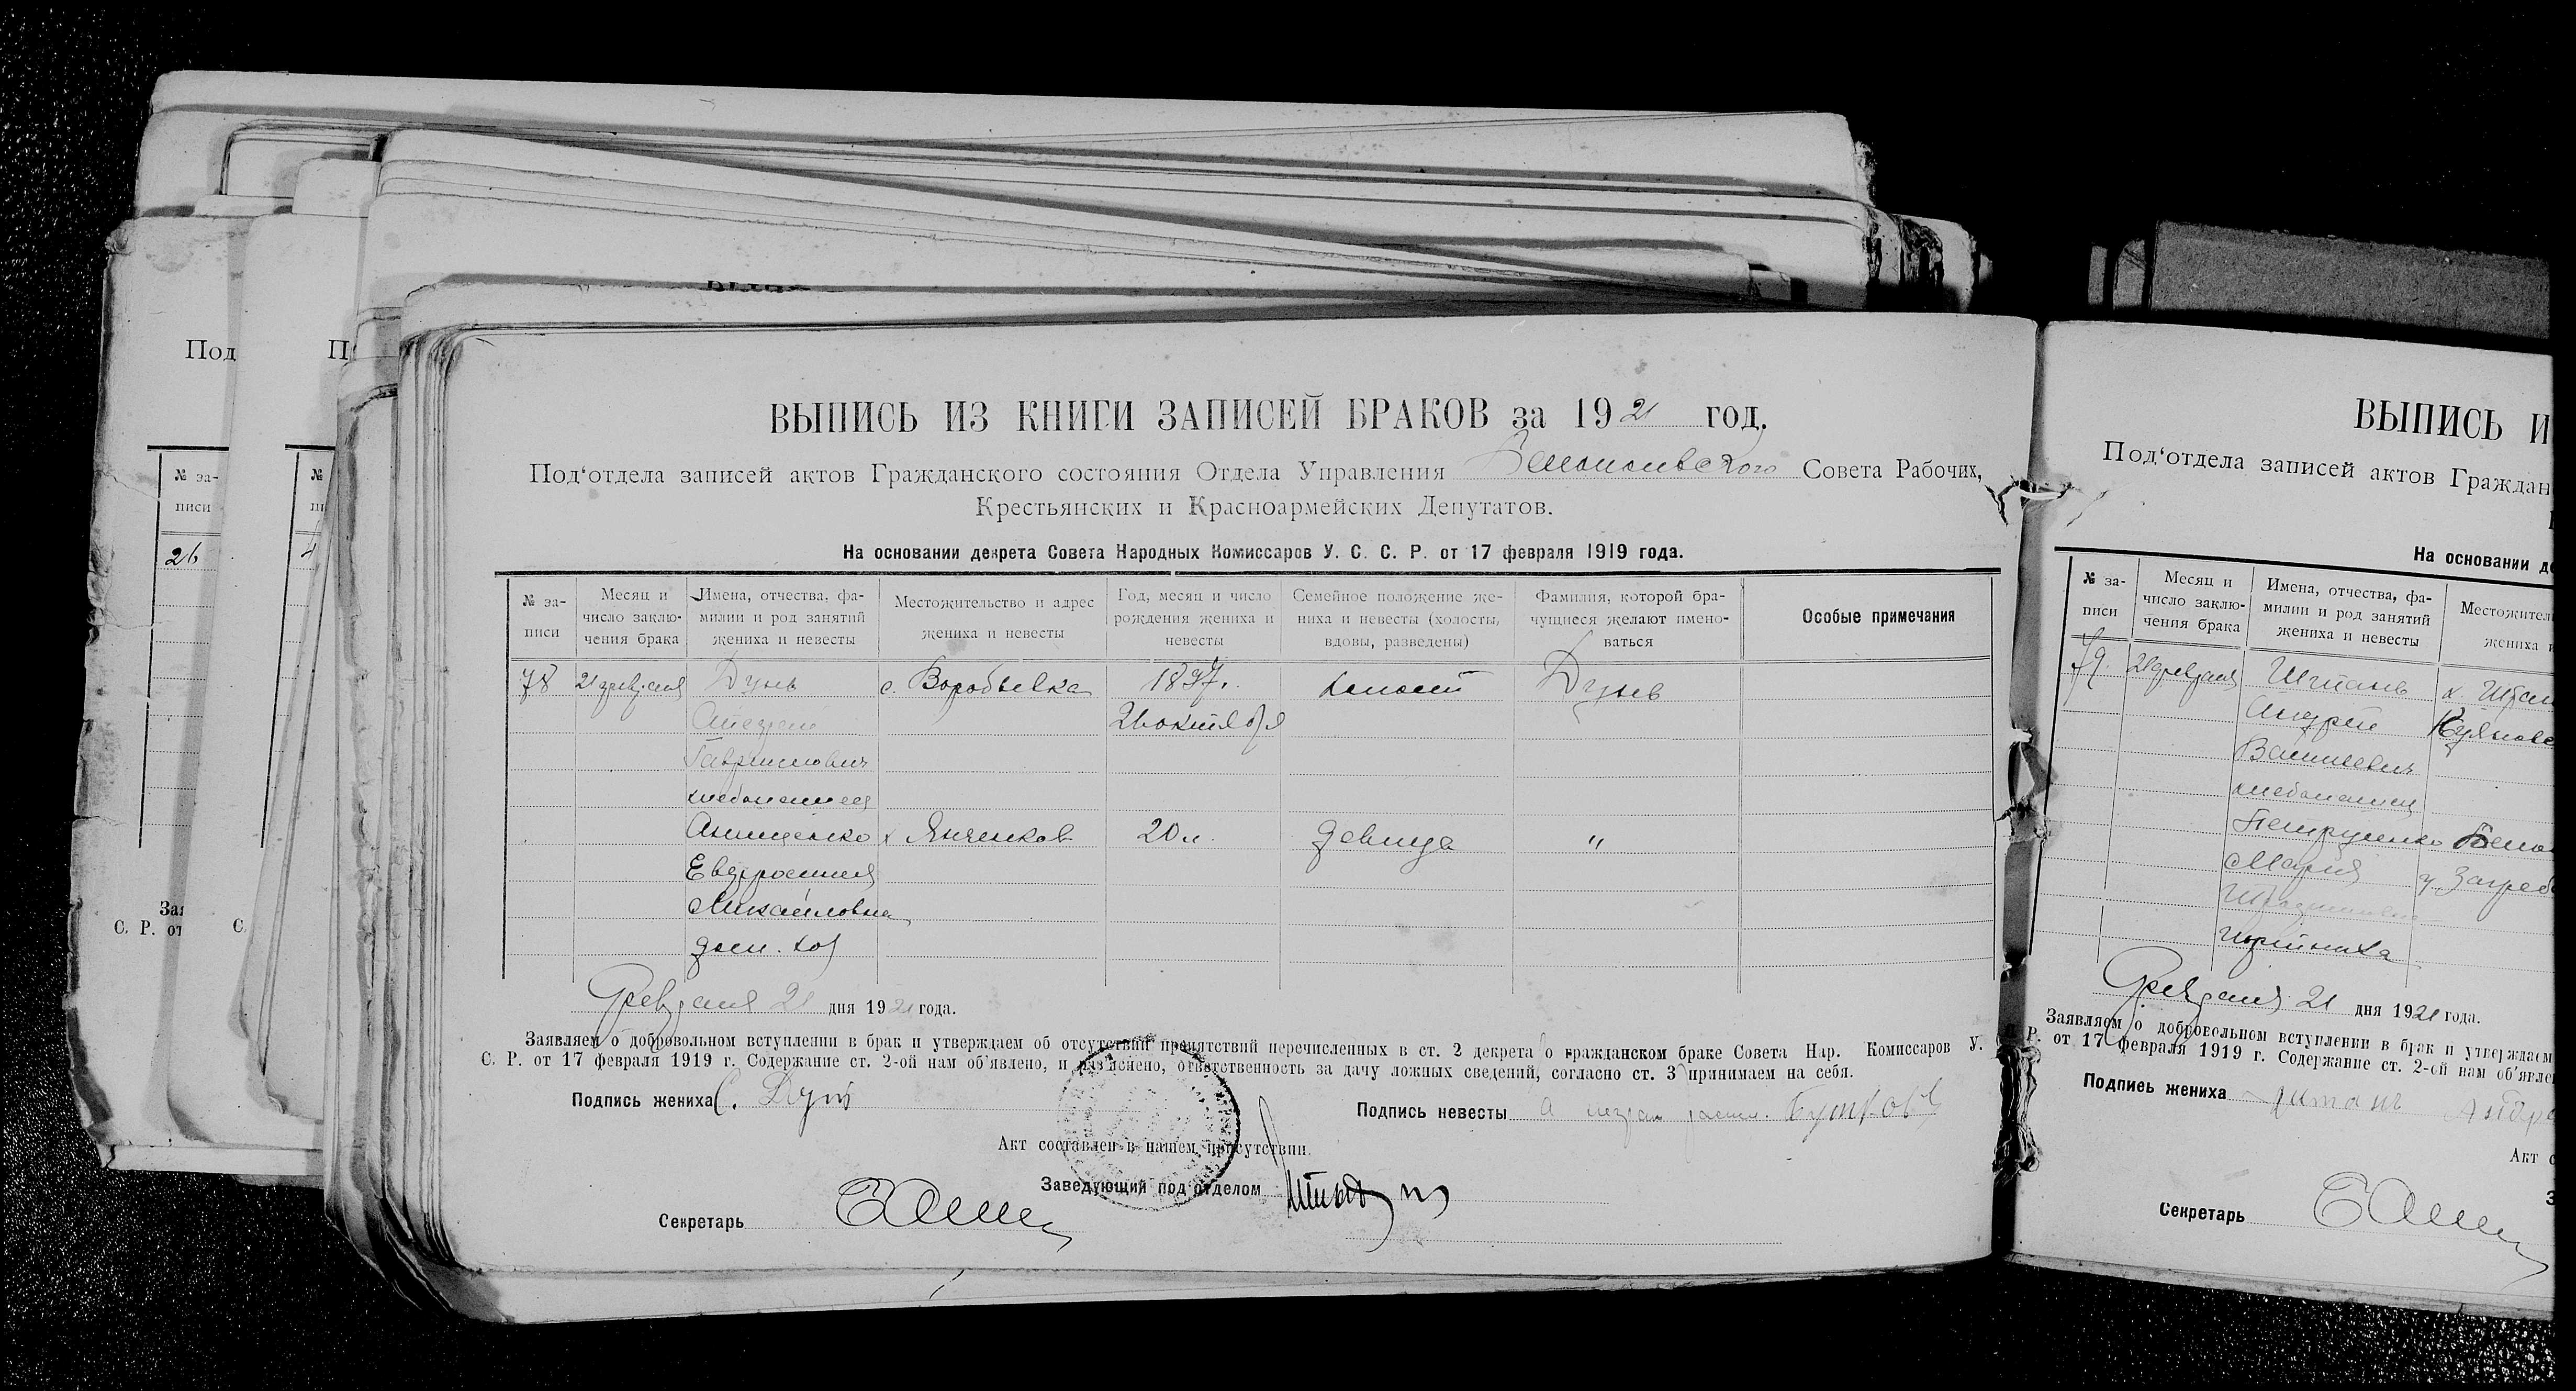 ВЫПИСЬ ИЗ КНИГИ ЗАПИСЕЙ БРАКОВ за 1921 год.
Под‘отдела записей актов Гражданского состояния Отдела Управления Совета Рабочих,
Крестьянских и Красноармейских Депутатов.
На основании декрета Совета Народных Комиссаров У. С. С. Р. от 17 февраля 1919 года.
№ за-
писи
Месяц и
число заклю-
чения брака
Имена, отчества, фа-
милии и род занятий
жениха и невесты
Местожительство и адрес
жениха и невесты
Год, месяц и число
рождения жениха и
невесты
Семейное положение же-
ниха и невесты (холосты,
вдовы, разведены)
Фамилия, которой бра-
чущиеся желают имено-
ваться
Особые примечания
78 21 февраля Дунь с. Воробьевка 1897 г. холост Дунь
октября
Гавриилович
хлебопашец
Анищенко х Янченков 20 л. девица "
Евдросиния
Михайловна
дом. хоз
Февраля 21 дня 1921 года.
Заявляем о добровольном вступлении в брак и утверждаем об отсутствии препятствий перечисленных в ст. 2 декрета о гражданском браке Совета Нар. Комиссаров У.
С. Р. от 17 февраля 1919 г. Содержание ст. 2-ой нам об‘явлено, и раз‘яснено, ответственность за дачу ложных сведений, согласно ст. 3 принимаем на себя.
Подпись жениха С. Дунь
Подпись невесты А
Акт составлен в нашем присутствии.
Заведующий под‘отделом
Секретарь
ВЫПИСЬ И
Под‘отдела записей актов Граждан
На основании де
№ за-
писи
Месяц и
число заклю-
чения брака
Имена, отчества, фа-
милии и род занятий
жениха и невесты
Местожител
жениха и
79. 21 февраля Штань
Андрей
Васильевич
хлебопашец
Петрушенко
Мария
Февраля 21 дня 1921 года.
Заявляем о добровольном вступлении в брак и утверждаем
Р. от 17 февраля 1919 г. Содержание ст. 2-ой нам об‘явле
Подпись жениха
Акт с
З
Секретарь
Под
№ за-
писи
26
Зая
С. Р. от
П
№
4
С